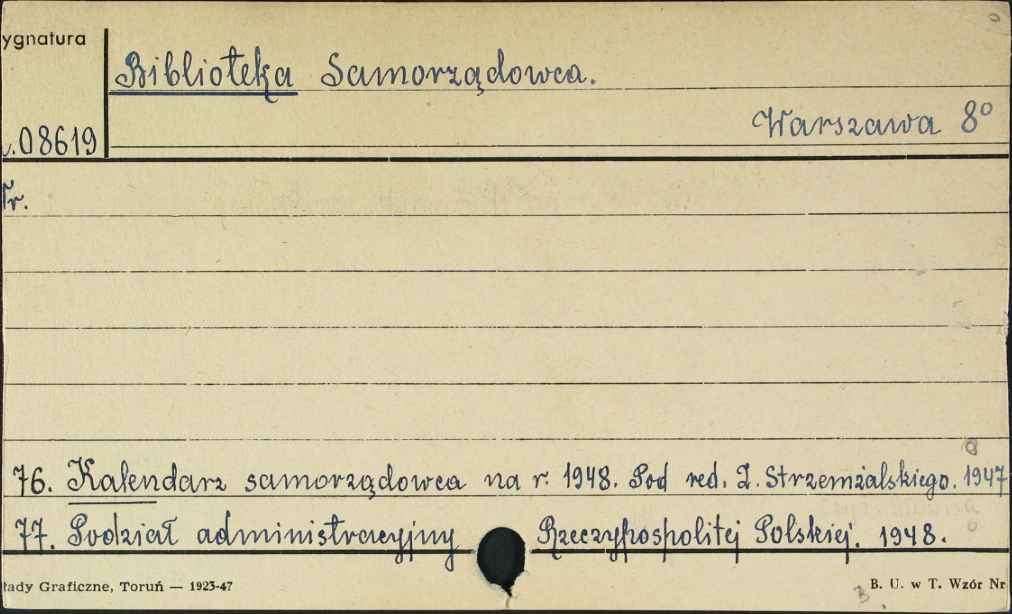 ygnatura
Biblioteka Samorządowca.
Warszawa 8°
08619
Tr.
76. Kalendarz samorządowca na r. 1948. Pod red. Z. Strzemżalskiego. 1947
77. Podział administracyjny Rzeczypospolitej Polskiej. 1948.
łady Graficzne, Toruń — 1923-47
B. U. w T. Wzór Nr